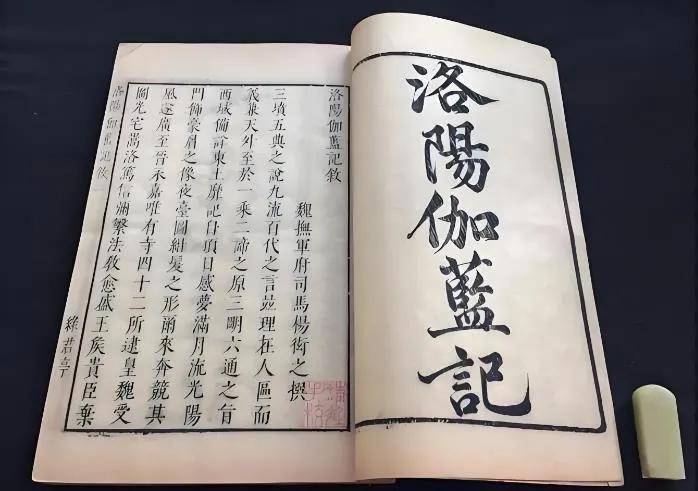 洛陽伽藍記
洛陽伽藍記敘
魏撫軍府司馬楊衒之撰
三墳五典之說九流百代之言竝理在人區而
義兼天外至於一乘二諦之原三明六通之旨
西域備詳東土靡記自項日感夢滿月流光陽
門飾豪眉之像夜臺圖紺髮之形爾來奔競其
風遂廣至晉永嘉唯有寺四十二所逮皇魏受
圖光宅嵩洛篤信彌繁法敎愈盛王矦貴臣棄
洛陽伽藍記敘 一
綠君亭